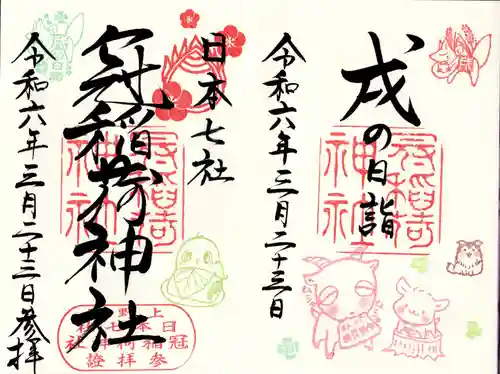 戌の日詣
令和六年三月二十三日
日本七社
冠稲荷神社
令和六年三月二十三日参拝
冠稲荷神社
冠稲荷神社
上野
日本七社
冠稲荷神社
参拝證